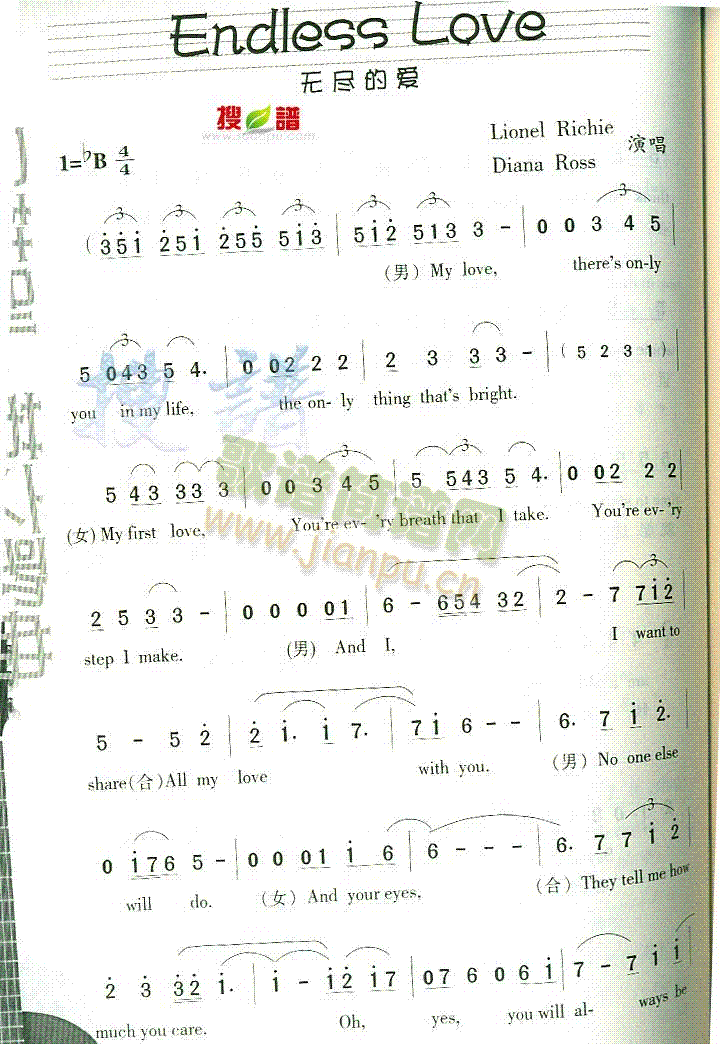 Endless Love
无尽的爱
搜谱
1=♭B 4/4
Lionel Richie
Diana Ross
演唱
(3̇51̇ 2̇51̇ 2̇55 51̇3̇ | 51̇2̇ 513 3 - | 0 0 3 4 5 |
(男) My love, there's on-ly
5 043 5 4. | 0 02 2 2 | 2 3 3 3 - | ( 5 2 3 1 ) |
you in my life, the on- ly thing that's bright.
5 43 33 3 | 0 0 3 4 5 | 5 543 5 4. | 0 02 2 2 |
(女) My first love, You're ev- 'ry breath that I take. You're ev-'ry
歌谱简谱网
www.jianpu.cn
2 5 3 3 - | 0 0 0 01 | 6 - 654 32 | 2 - 7 71̇2̇ |
step I make. (男) And I, I want to
5 - 5 2̇ | 2̇ 1̇. 1̇ 7. | 71̇ 6 - - | 6. 7 1̇ 2̇. |
share(合)All my love with you. (男) No one else
0 1̇76 5 - | 0 0 01 1̇ 6 | 6 - - - | 6. 7 7 1̇ 2̇ |
will do. (女) And your eyes, (合) They tell me how
2̇ 3̇ 3̇2̇ 1̇. | 1̇ - 1̇2̇ 1̇7 | 07 6 0 6 1̇ | 7 - 7 1̇ 1̇ |
much you care. Oh, yes, you will al- ways be